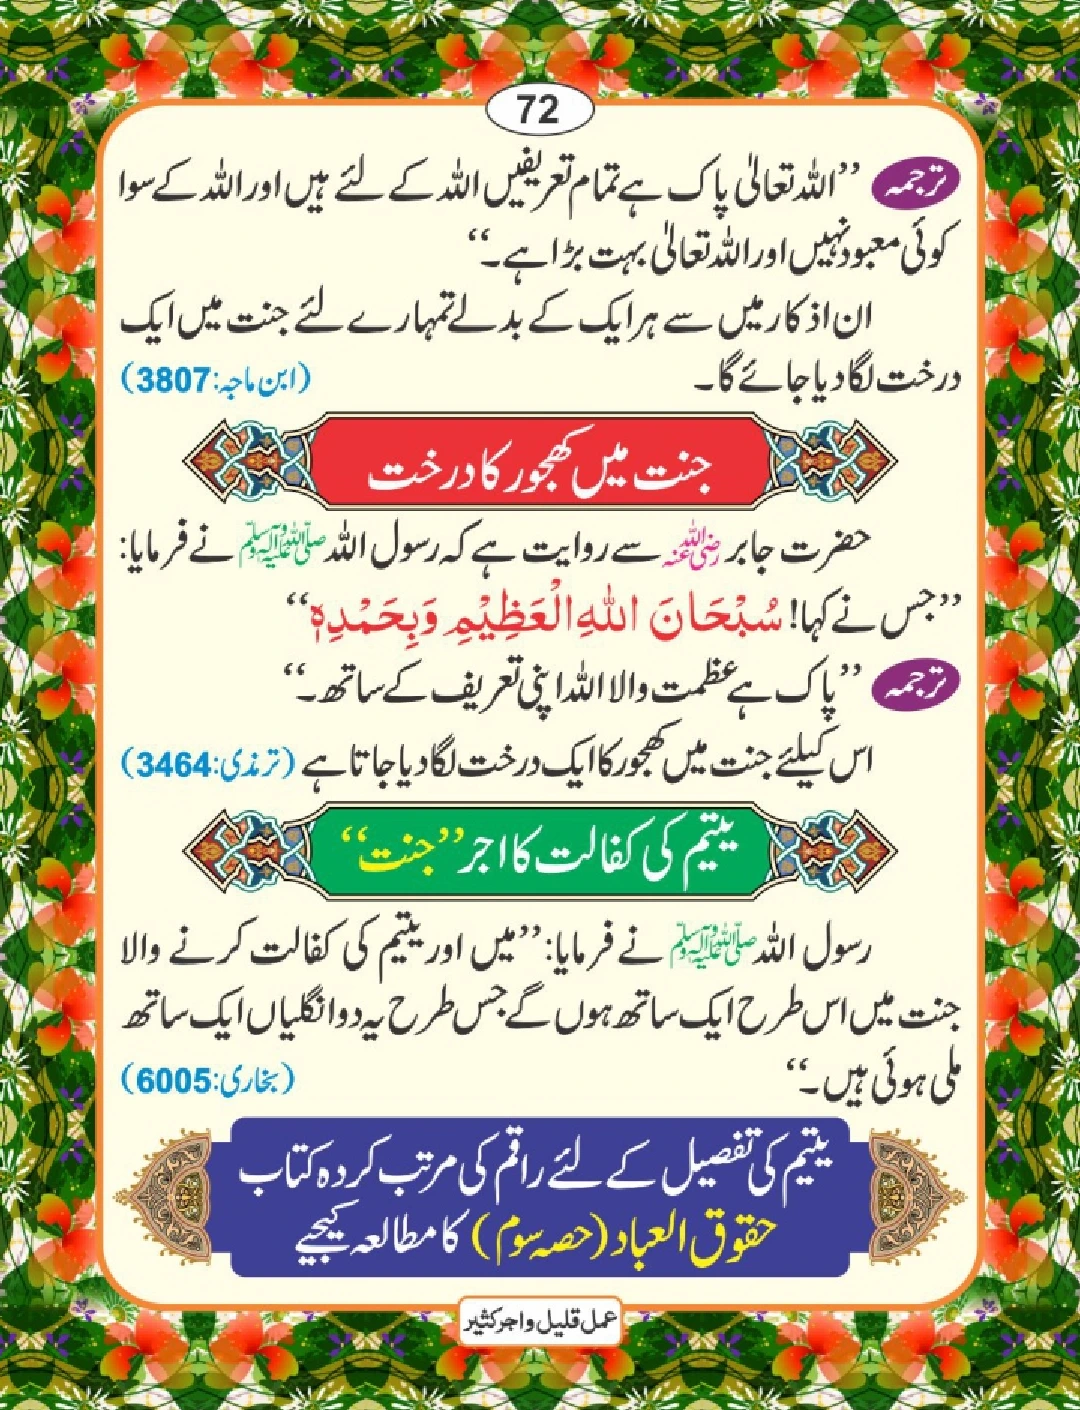 72
ترجمہ ’’اللہ تعالیٰ پاک ہے تمام تعریفیں اللہ کے لئے ہیں اور اللہ کے سوا
کوئی معبود نہیں اور اللہ تعالیٰ بہت بڑا ہے۔‘‘
ان اذکار میں سے ہر ایک کے بدلے تمہارے لئے جنت میں ایک
درخت لگا دیا جائے گا۔ (ابن ماجہ:3807)
جنت میں کھجور کا درخت
حضرت جابر رضی اللہ عنہ سے روایت ہے کہ رسول اللہ صلی اللہ علیہ وآلہ وسلم نے فرمایا:
’’جس نے کہا! سُبْحَانَ اللهِ الْعَظِيْمِ وَبِحَمْدِہٖ‘‘
ترجمہ ’’پاک ہے عظمت والا اللہ اپنی تعریف کے ساتھ۔‘‘
اس کیلئے جنت میں کھجور کا ایک درخت لگا دیا جاتا ہے (ترمذی:3464)
یتیم کی کفالت کا اجر ’’جنت‘‘
رسول اللہ صلی اللہ علیہ وآلہ وسلم نے فرمایا: ’’میں اور یتیم کی کفالت کرنے والا
جنت میں اس طرح ایک ساتھ ہوں گے جس طرح یہ دو انگلیاں ایک ساتھ
ملی ہوئی ہیں۔‘‘ (بخاری:6005)
یتیم کی تفصیل کے لئے راقم کی مرتب کردہ کتاب
حقوق العباد (حصہ سوم) کا مطالعہ کیجیے
عمل قلیل واجر کثیر